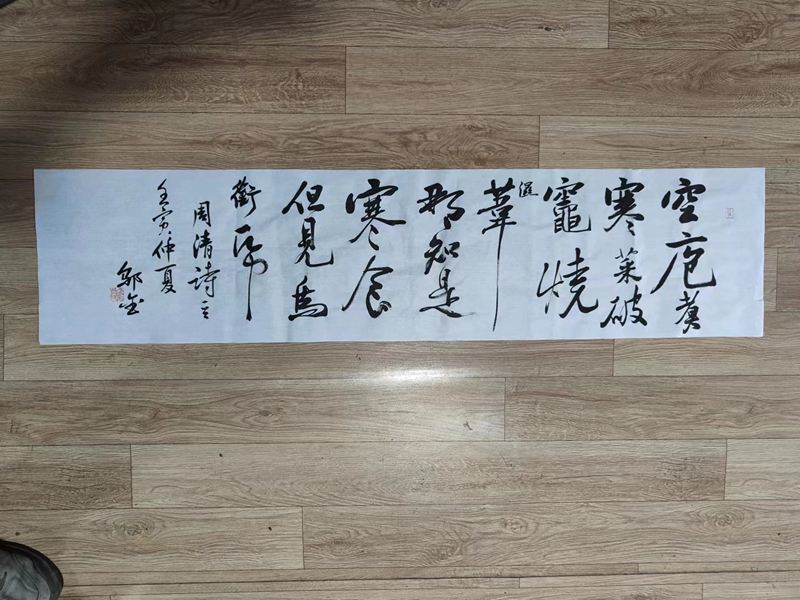 空庖煮
寒菜破
竈燒
濕
葦
那知是
寒食
但見烏
銜帋
周清詩
壬寅仲夏